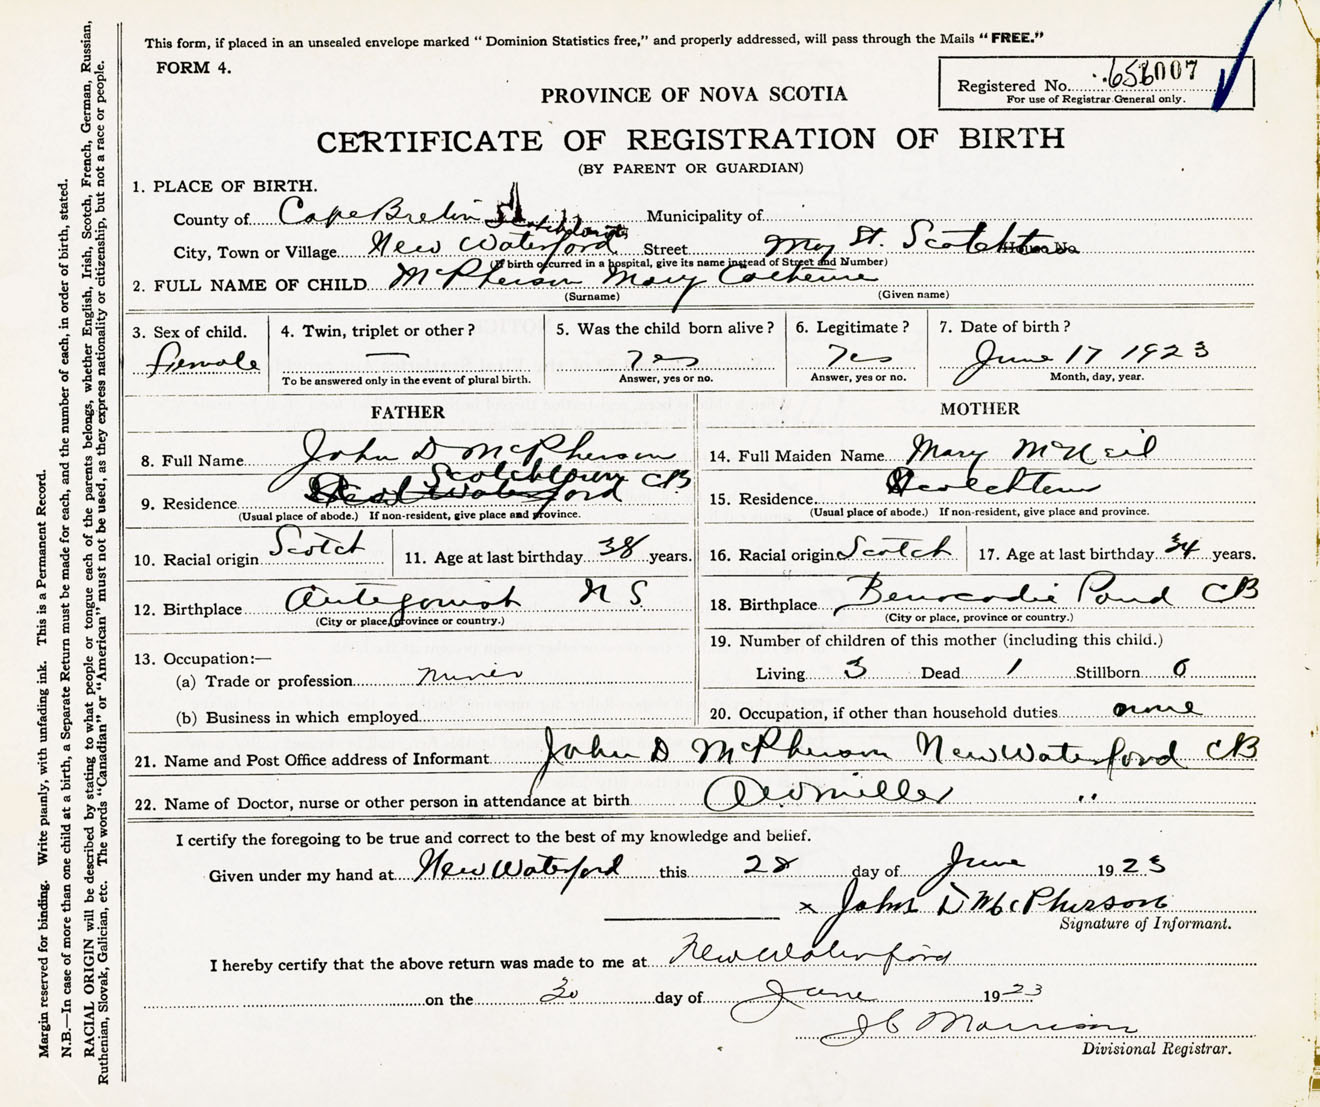 This form, if placed in an unsealed envelope marked " Dominion Statistics free," and properly addressed, will pass through the Mails "FREE."
FORM 4.
Registered No. 007
For use of Registrar General only.
PROVINCE OF NOVA SCOTIA
CERTIFICATE OF REGISTRATION OF BIRTH
(BY PARENT OR GUARDIAN)
1. PLACE OF BIRTH.
County of Cape Breton Municipality of
City, Town or Village New Waterford Street May St. Scotchtown House No
(If birth occurred in a hospital, give its name instead of Street and Number)
2. FULL NAME OF CHILD McPherson Mary Catherine
(Surname) (Given name)
3. Sex of child. 4. Twin, triplet or other? 5. Was the child born alive? 6. Legitimate? 7. Date of birth?
Female — Yes Yes June 17 1923
To be answered only in the event of plural birth. Answer, yes or no. Answer, yes or no. Month, day, year.
FATHER
8. Full Name John D McPherson
Scotchtown CB
9. Residence New Waterford
(Usual place of abode.) If non-resident, give place and province.
10. Racial origin Scotch 11. Age at last birthday 38 years.
12. Birthplace Antegonish N S.
(City or place, province or country.)
13. Occupation:—
(a) Trade or profession miner
(b) Business in which employed
MOTHER
14. Full Maiden Name Mary McNeil
15. Residence Scotchtown
(Usual place of abode.) If non-resident, give place and province.
16. Racial origin Scotch 17. Age at last birthday 34 years.
18. Birthplace Benacadie Pond CB
(City or place, province or country.)
19. Number of children of this mother (including this child.)
Living 3 Dead 1 Stillborn 0
20. Occupation, if other than household duties none
21. Name and Post Office address of Informant John D McPherson New Waterford CB
22. Name of Doctor, nurse or other person in attendance at birth Miller "
I certify the foregoing to be true and correct to the best of my knowledge and belief.
Given under my hand at New Waterford this 28 day of June 1923
x John D McPherson
Signature of Informant.
I hereby certify that the above return was made to me at New Waterford
on the 30 day of June 1923
J C Morrison
Divisional Registrar.
Margin reserved for binding. Write plainly, with unfading ink. This is a Permanent Record.
N.B.—In case of more than one child at a birth, a Separate Return must be made for each, and the number of each, in order of birth, stated.
RACIAL ORIGIN will be described by stating to what people or tongue each of the parents belongs, whether English, Irish, Scotch, French, German, Russian,
Ruthenian, Slovak, Galician, etc. The words "Canadian" or "American" must not be used, as they express nationality or citizenship, but not a race or people.